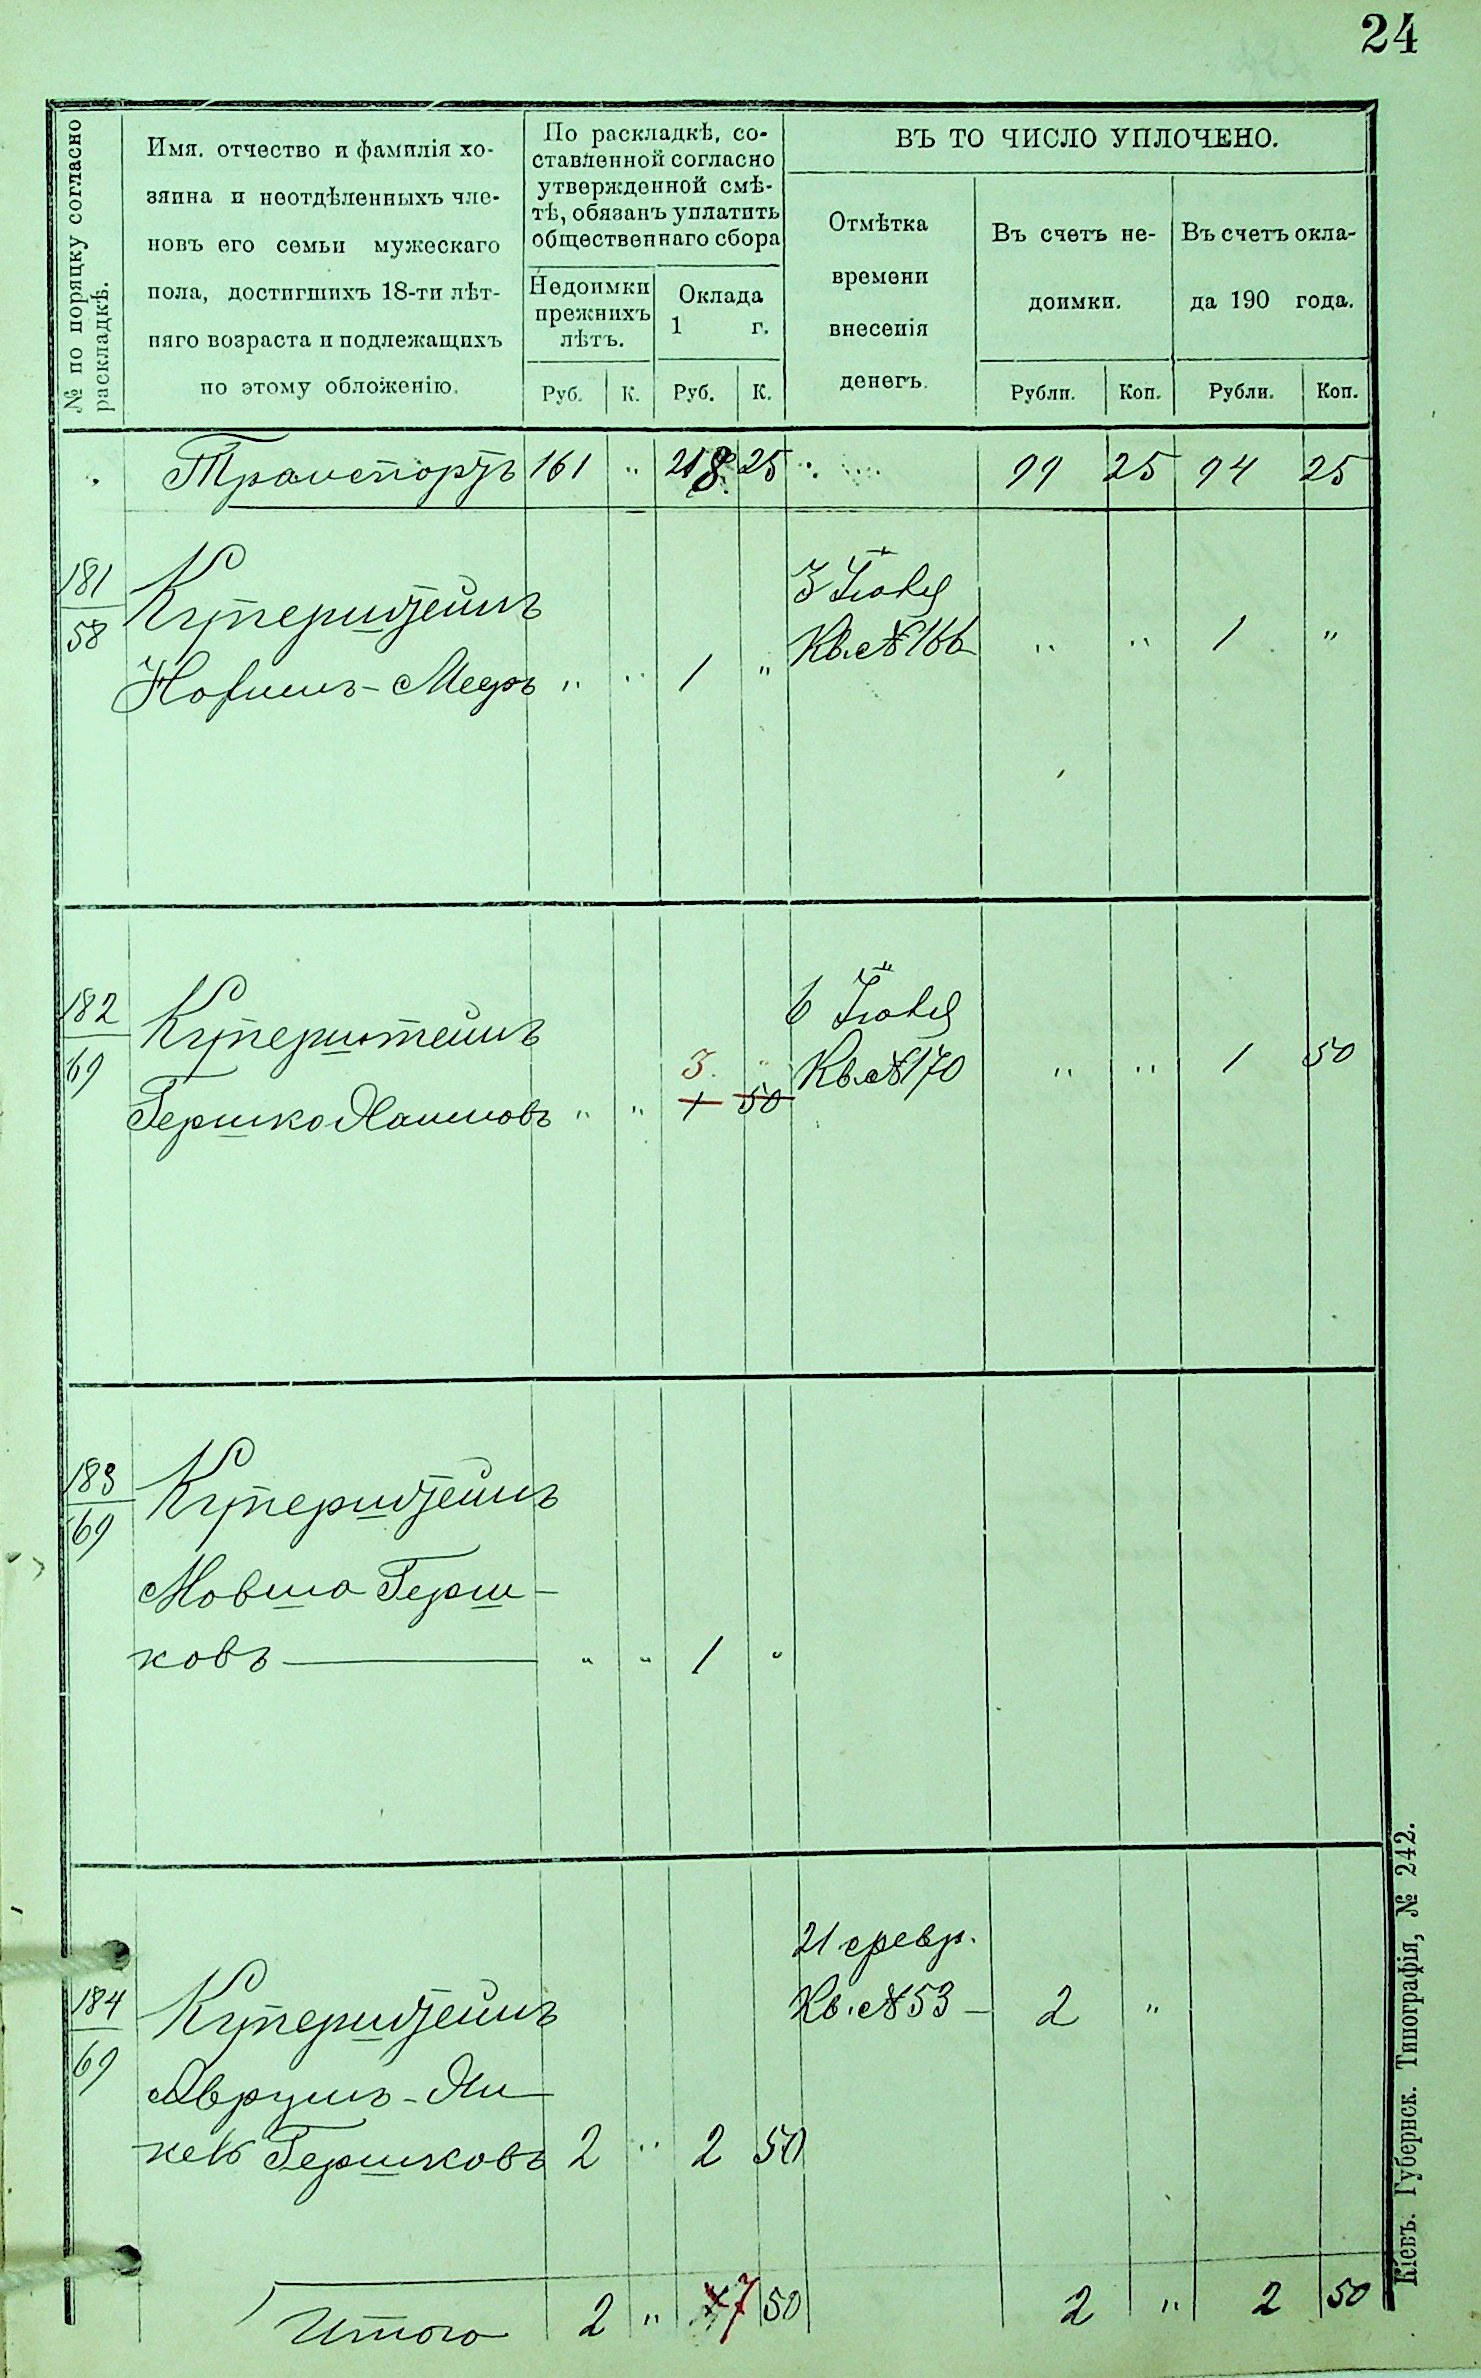 24
№ по порядку согласно
раскладкѣ.
Имя, отчество и фамилія хо-
зяина и неотдѣленныхъ чле-
новъ его семьи мужескаго
пола, достигшихъ 18-ти лѣт-
няго возраста и подлежащихъ
по этому обложенію.
По раскладкѣ, со-
ставленной согласно
утвержденной смѣ-
тѣ, обязанъ уплатить
общественнаго сбора
Недоимки
прежнихъ
лѣтъ.
Оклада
1 г.
Руб. К. Руб. К.
ВЪ ТО ЧИСЛО УПЛОЧЕНО.
Отмѣтка
времени
внесенія
денегъ.
Въ счетъ не-
доимки.
Въ счетъ окла-
да 190 года.
Рубли. Коп. Рубли. Коп.
Транспортъ 161 " 218 25 99 25 94 25
181
58
Куперштейнъ
3 Іюля
Кв. № 166 " " 1 "
- Медъ " " 1 "
182
69
Куперштейнъ
6 Іюля
Кв. № 170 " " 1 50
3 "
Гершко Хаимовъ " " 1 50
183
69
Куперштейнъ
Мовша Герш-
ковъ " " 1 "
184
69
21 февр.
Кв. № 53 2 "
Куперштейнъ
Аврумъ-Ян-
кель Гершковъ 2 " 2 50
Итого 2 " 7 50 2 " 2 50
Кіевъ. Губернск. Типографія, № 242.